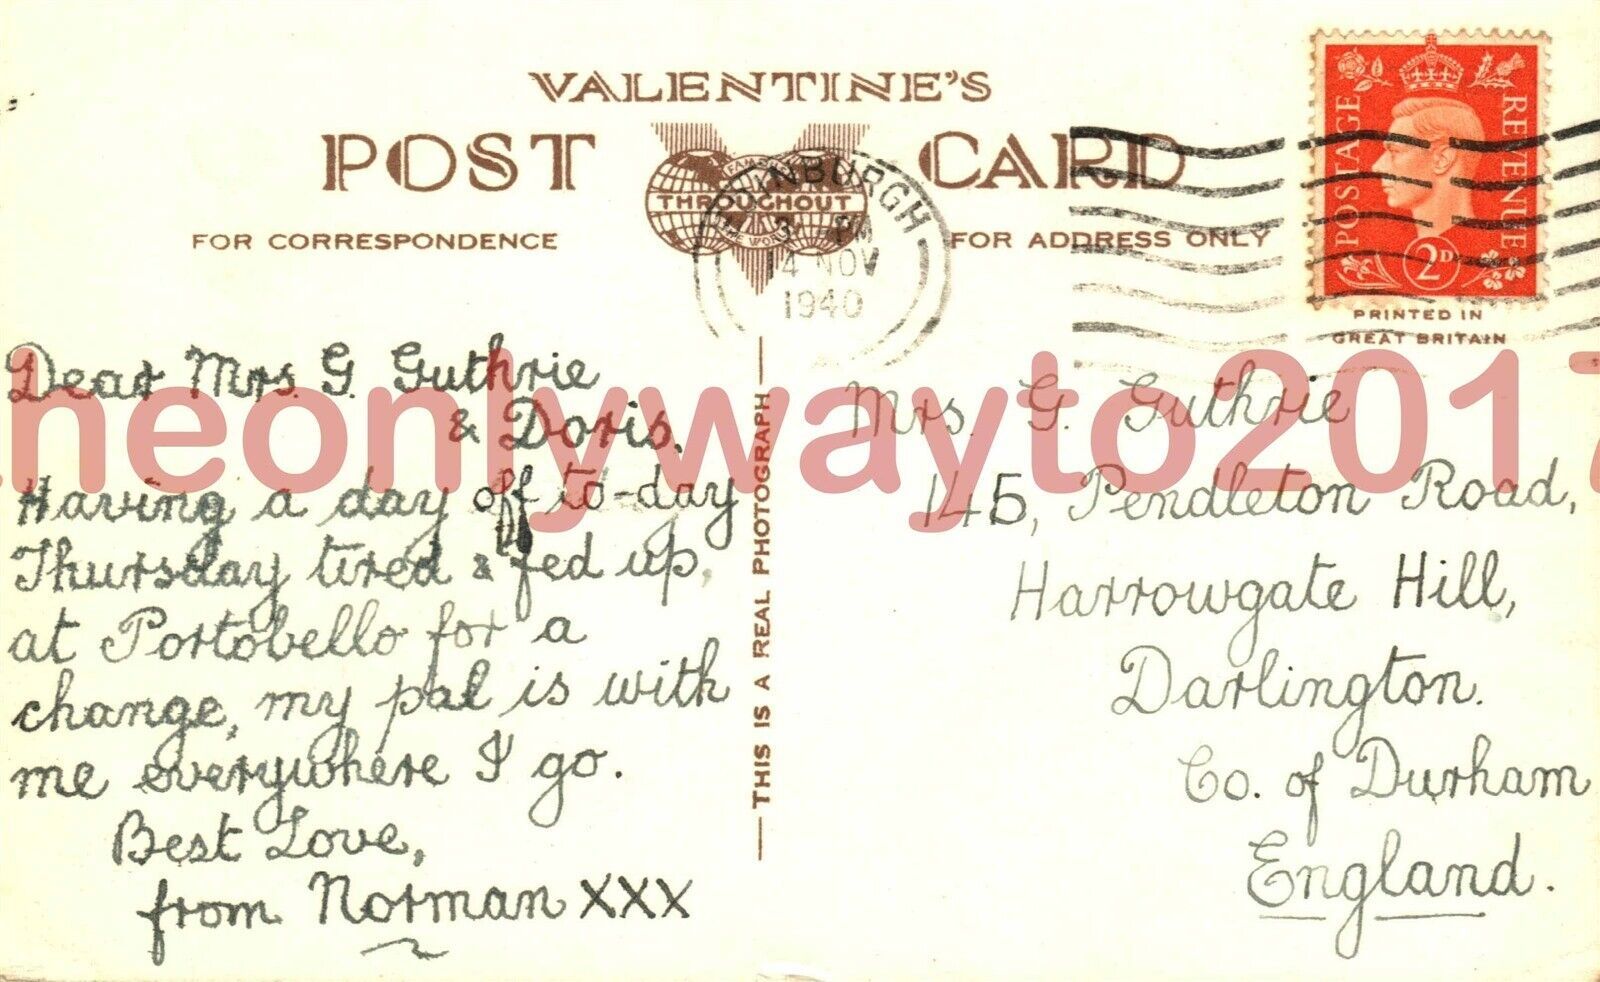 VALENTINE'S
POST CARD
FAMOUS
THROUGHOUT
THE WORLD
FOR CORRESPONDENCE
FOR ADDRESS ONLY
EDINBURGH
PM
14 NOV
1940
POSTAGE
REVENUE
2D
PRINTED IN
GREAT BRITAIN
Dear Mrs. G. Guthrie
& Doris.
Having a day off to-day
Thursday tired & fed up,
at Portobello for a
change, my pal is with
me everywhere I go.
Best Love,
from Norman XXX
THIS IS A REAL PHOTOGRAPH
Mrs. G. Guthrie
145, Pendleton Road,
Harrowgate Hill,
Darlington.
Co. of Durham
England.
heonlywayto2017